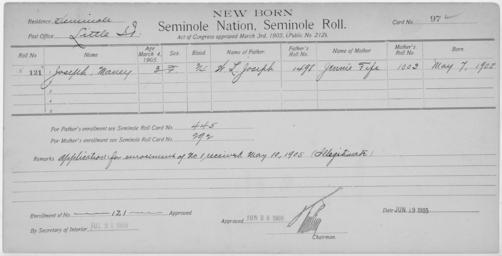 NEW BORN
Residence Seminole
Seminole Nation, Seminole Roll.
Card No. 97
Post Office Little
Act of Congress approved March 3rd, 1905, (Public No. 212).
Roll No Name Age March 4, 1905 Sex Blood Name of Father Father's Roll No. Name of Mother Mother's Roll No. Born
121 Joseph, 3 F W. L. Joseph 1498 Jennie Fife 1002 May 7, 1902
For Father's enrollment see Seminole Roll Card No. 445
For Mother's enrollment see Seminole Roll Card No. 292
Remarks Application for enrollment of No. 1, received May 10, 1905 (Illegitimate)
Enrollment of No. 121 Approved
Approved 1905
Date JUN 19 1905
By Secretary of Interior 1905
Chairman.